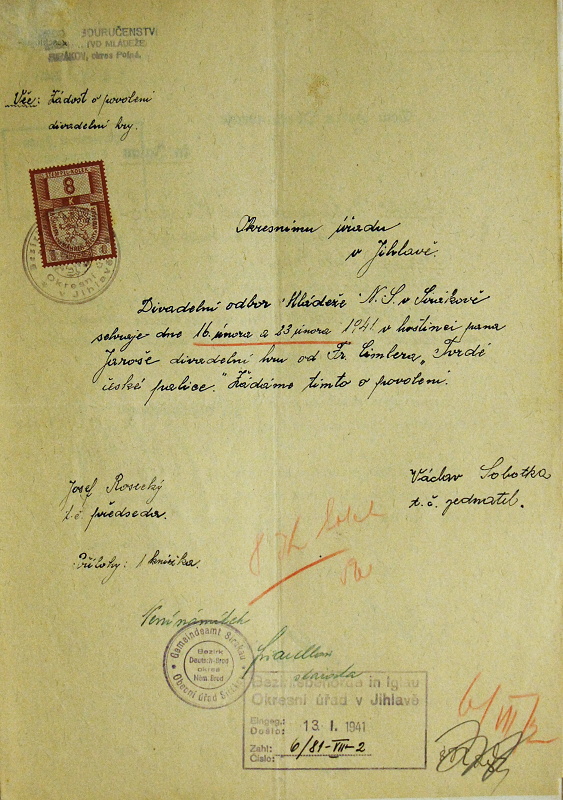 NÁRODNÍ SOURUČENSTVÍ
MLÁDEŽE
okres Polná.
Věc: Žádost o povolení
divadelní hry.
8
K
Okresnímu úřadu
v Jihlavě.
Divadelní odbor Mládeže N. S. v Sirákově
sehraje dne 16. února a 23 února 1941 v hostinci pana
Jaroše divadelní hru od Fr. Cimlera „Tvrdé
české palice." Žádáme tímto o povolení.
Josef Rosecký
t. č. předseda.
Václav Sobotka
t. č. jednatel.
Přílohy: 1 knížka.
Není námitek
starosta
Gemeindeamt Sirakau
Bezirk
Deutsch-Brod
okres
Něm. Brod
Obecní úřad Sirákov
Bezirksbehörde in Iglau
Okresní úřad v Jihlavě
Eingeg.:
Došlo: 13. I. 1941
Zahl: 6/81-VIII-2
Číslo:
6/VIII/2